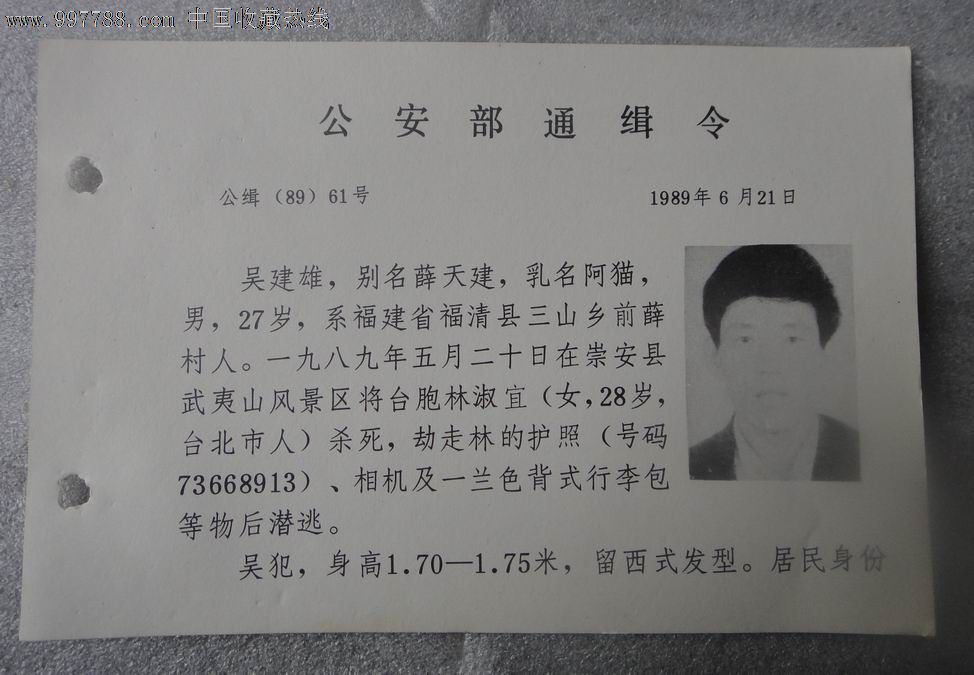 www.997788.com 中国收藏热线
公安部通缉令
公缉（89）61号
1989年6月21日
吴建雄，别名薛天建，乳名阿猫，
男，27岁，系福建省福清县三山乡前薛
村人。一九八九年五月二十日在崇安县
武夷山风景区将台胞林淑宜（女，28岁，
台北市人）杀死，劫走林的护照（号码
73668913）、相机及一兰色背式行李包
等物后潜逃。
吴犯，身高1.70—1.75米，留西式发型。居民身份